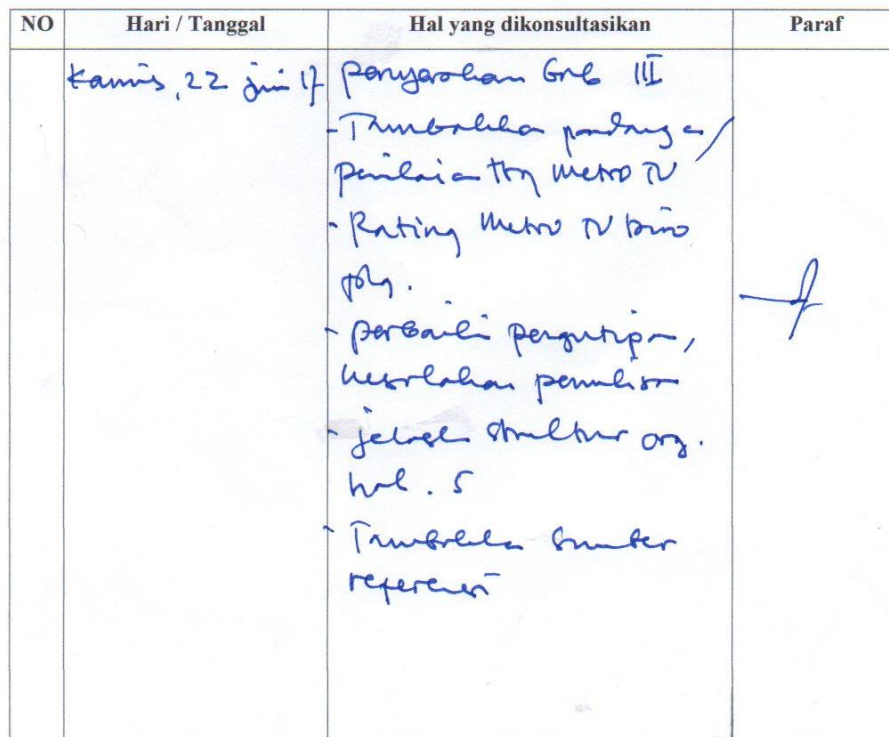 NO Hari / Tanggal Hal yang dikonsultasikan Paraf
Kamis, 22 Juni 17 Penyerahan Bab III
- Tambahkan pandangan /
penilaian ttg Metro TV
- Rating Metro TV biro
plg.
- perbaiki pengutipan,
kesalahan penulisan
- jelaskan struktur org.
hal. 5
- Tambahkan Sumber
referensi